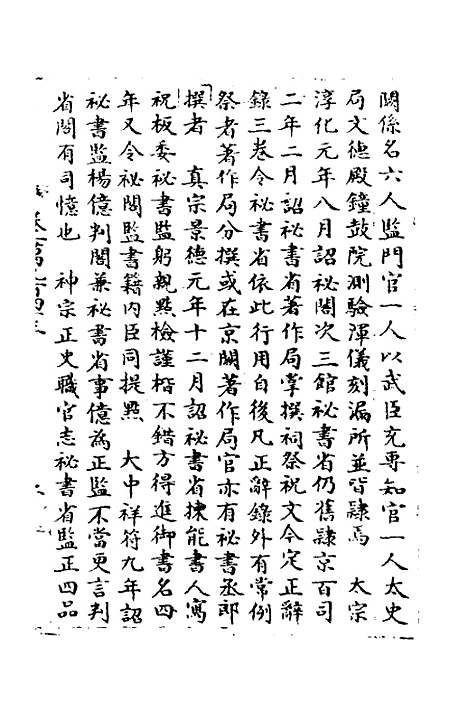 闕係名六人監門官一人以武臣充專知官一人太史
局文德殿鐘鼓院測驗渾儀刻漏所並皆隷焉　太宗
淳化元年八月詔秘閣次三館秘書省仍舊隷京百司
二年二月詔秘書省著作局掌撰祠祭祝文今定正辭
錄三卷令秘書省依此行用自後凡正辭錄外有常例
祭者著作局分撰或在京闕著作局官亦有秘書丞郎
撰者　真宗景德元年十二月詔秘書省揀能書人寫
祝板委秘書監躬親點檢謹楷不錯方得進御書名四
年又令秘閣監書籍内臣同提點　大中祥符九年詔
秘書監楊億判閣兼秘書省事億為正監不當更言判
省閣有司憶也　神宗正史職官志秘書省監正四品